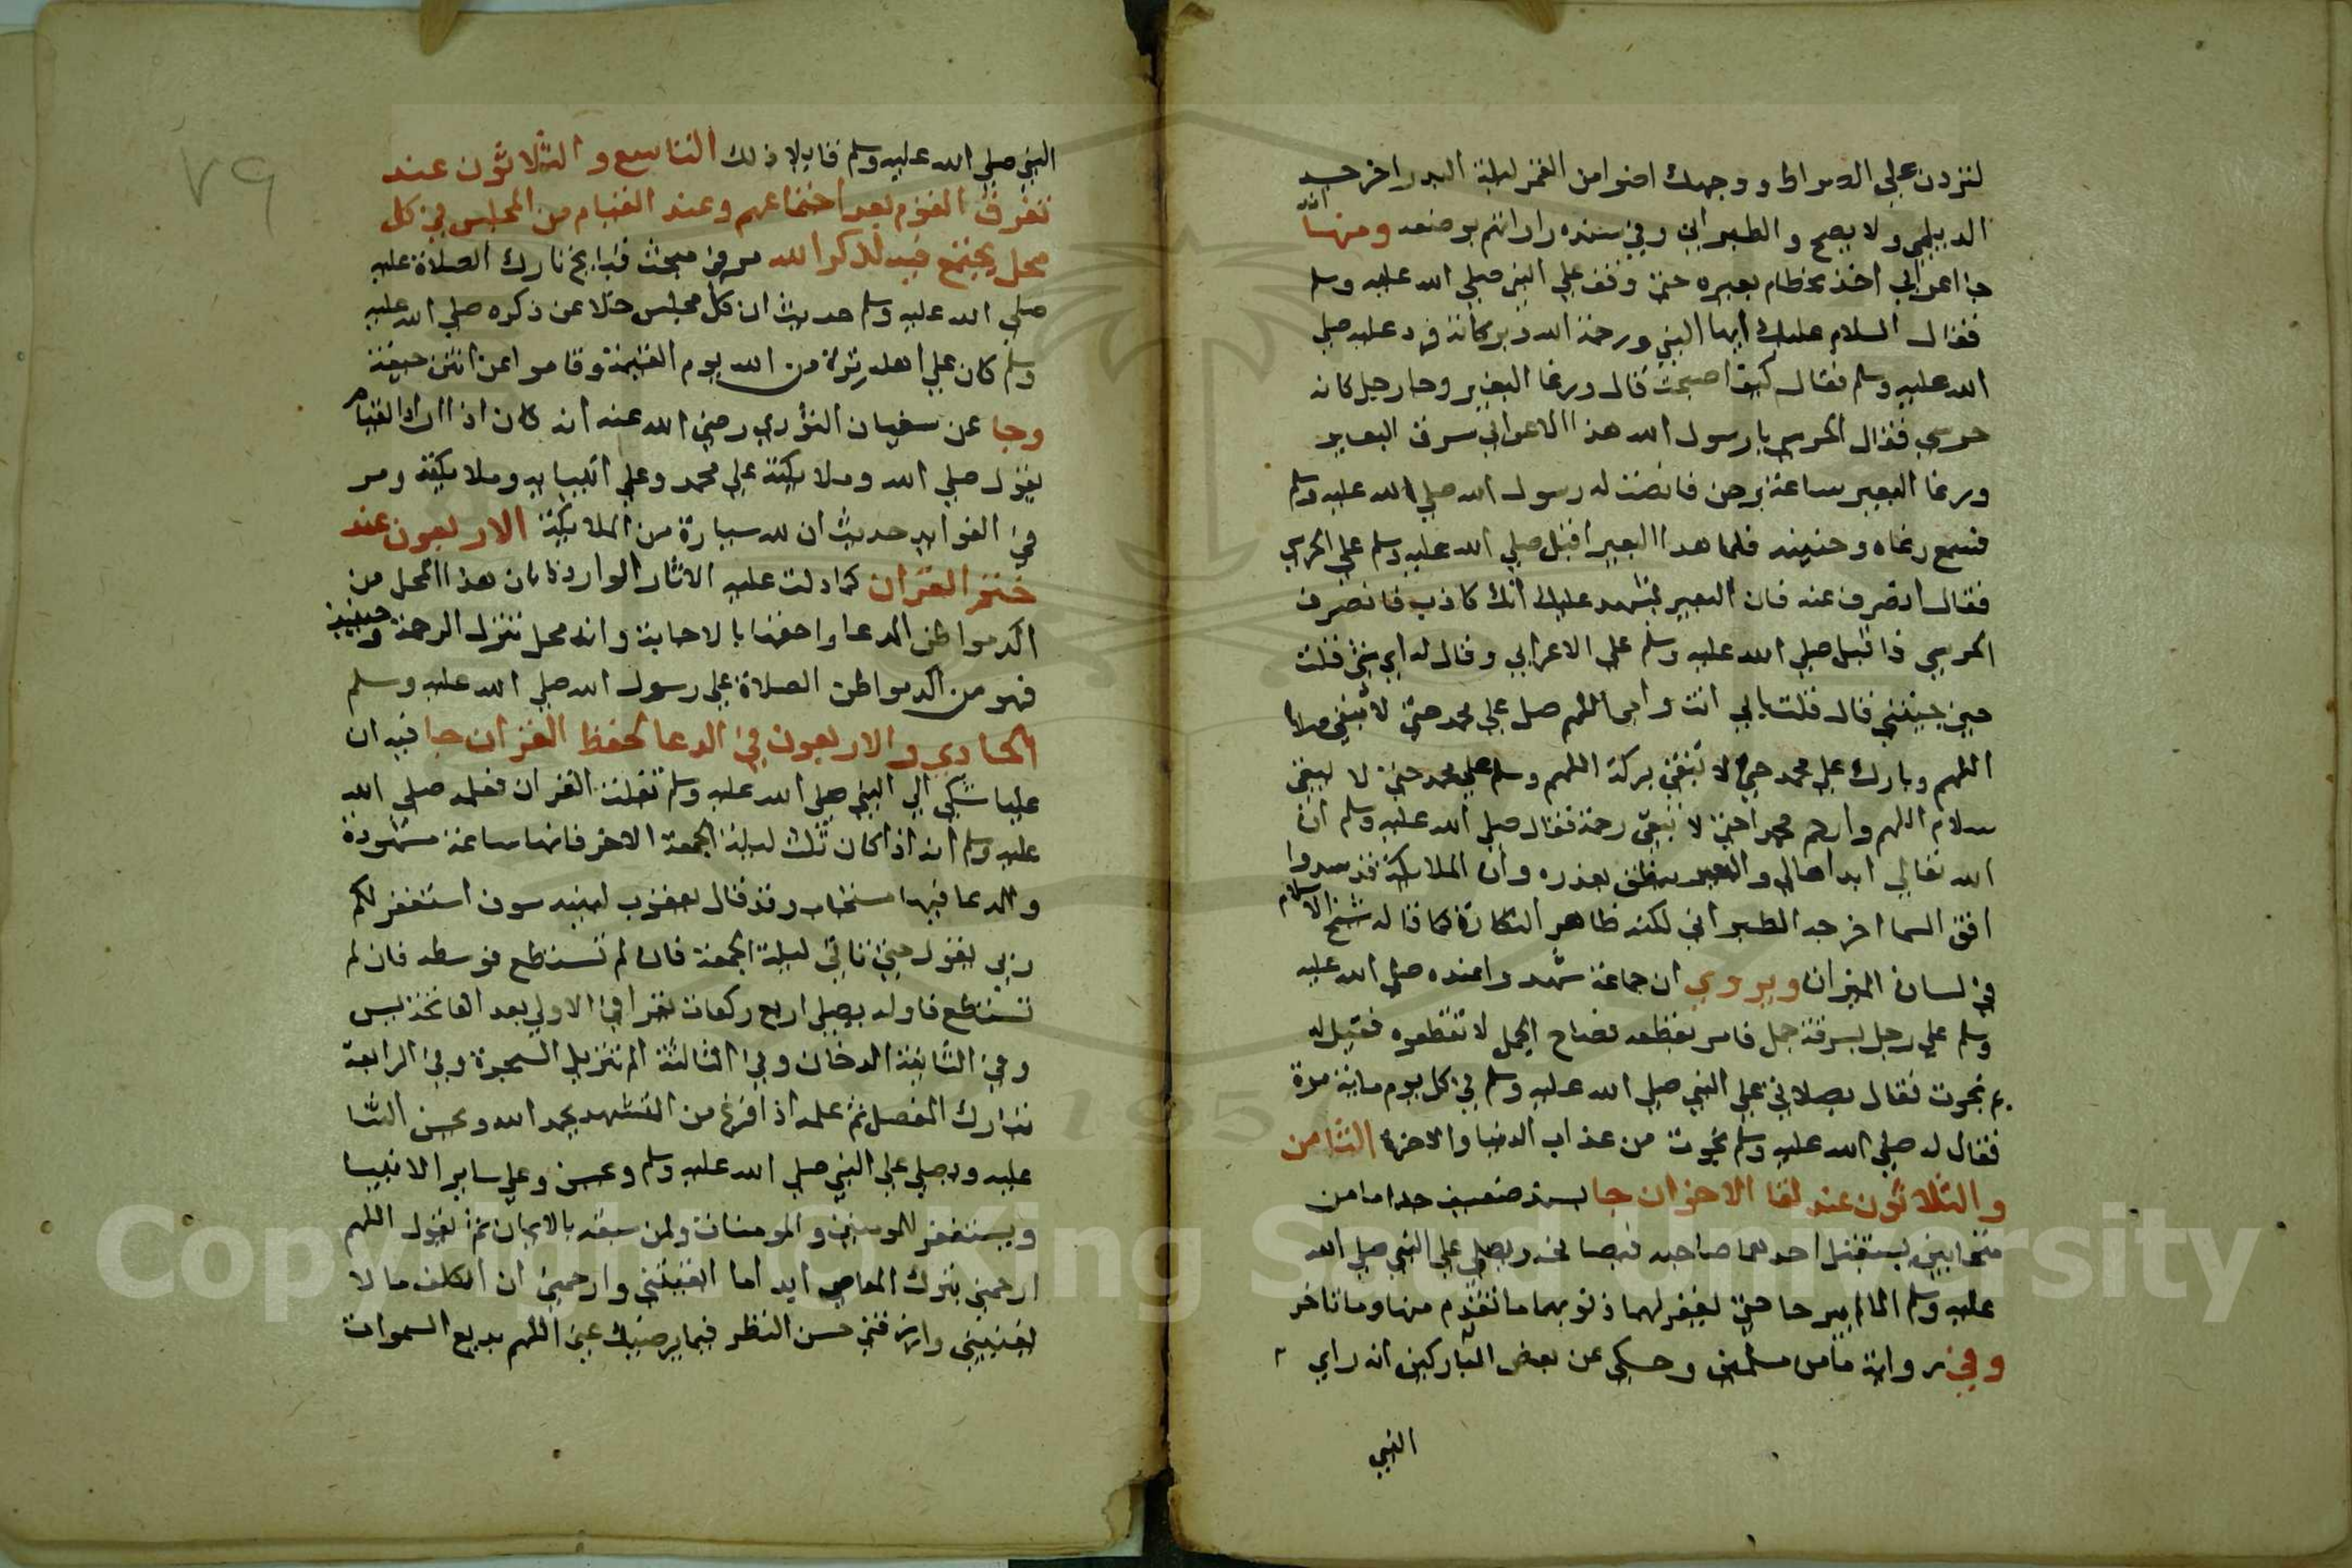 لتردن علي الصراط ووجهك اضوا من القمر ليلة البدر اخرجه
الديلمي ولا يصح والطبراني وفي سنده راو اتهم بوضعه ومنها انه
جا اعرابي اخذ بخطام بعيره حتي وقف علي النبي صلي الله عليه وسلم
فقال السلام عليك ايها النبي ورحمة الله وبركاته فرد عليه صلي
الله عليه وسلم فقال كيف اصبحت قال ورغا البعير وجا رجل كانه
حرسي فقال الحرسي يا رسول الله هذا الاعرابي سرق البعير
ورغا البعير ساعة وحن فانصت له رسول الله صلي الله عليه وسلم
فسمع رغاه وحنينه فلما هدا البعير اقبل صلي الله عليه وسلم علي الحرسي
فقال انصرف عنه فان البعير يشهد عليك انك كاذب فانصرف
الحرسي فاقبل صلي الله عليه وسلم علي الاعرابي وقال له اي شي قلت
حين جيتني قال قلت بابي انت وامي اللهم صل علي محمد حتي لا تبقي صلاة
اللهم وبارك علي محمد حتي لا تبقي بركة اللهم وسلم علي محمد حتي لا يبقي
سلام اللهم وارحم محمدا حتي لا تبقي رحمة فقال صلي الله عليه وسلم ان
الله تعالي ابداها لي والبعير ينطق بعذره وان الملايكة قد سدوا
افق السما اخرجه الطبراني لكنه ظاهر النكارة كما قاله شيخ الاسلام
في لسان الميزان ويروي ان جماعة شهدوا عنده صلي الله عليه
وسلم علي رجل بسرقة جمل فامر بقطعه فصاح الجمل لا تقطعوه فقيل له
بم نجوت فقال بصلاتي علي النبي صلي الله عليه وسلم في كل يوم ماية مرة
فقال له صلي الله عليه وسلم نجوت من عذاب الدنيا والاخرة الثامن
والثلاثون عند لقا الاخوان جا بسند ضعيف جدا ما من
متحابين يستقبل احدهما صاحبه فيصافحه ويصلي علي النبي صلي الله
عليه وسلم الا لم يبرحا حتي يغفر لهما ذنوبهما ما تقدم منها وما تاخر
وفي رواية ما من مسلمين وحكي عن بعض المباركين انه راي
النبي
٧٩
النبي صلي الله عليه وسلم قايلا ذلك التاسع والثلاثون عند
تفرق القوم بعد اجتماعهم وعند القيام من المجلس في كل
محل يجتمع فيه لذكر الله مر في مبحث قبايح تارك الصلاة عليه
صلي الله عليه وسلم حديث ان كل مجلس خلا عن ذكره صلي الله عليه
وسلم كان علي اهله ترة من الله يوم القيمة وقاموا عن انتن جيفة
وجا عن سفيان الثوري رضي الله عنه انه كان اذا اراد القيام
يقول صلي الله وملايكته علي محمد وعلي انبيايه وملايكته ومر
في الفوايد حديث ان لله سيارة من الملايكة الاربعون عند
ختم القران كما دلت عليه الاثار الواردة بان هذا المحل من
اكد مواطن الدعا واحقها بالاجابة وانه محل تنزل الرحمة وحينيذ
فهو من اكد مواطن الصلاة علي رسول الله صلي الله عليه وسلم
الحادي والاربعون في الدعا لحفظ القران جا فيه ان
عليا شكي الي النبي صلي الله عليه وسلم تفلت القران فعلمه صلي الله
عليه وسلم انه اذا كان ثلث ليلة الجمعة الاخر فانها ساعة مشهودة
والدعا فيها مستجاب وقد قال يعقوب لبنيه سوف استغفر لكم
ربي يقول حتي تاتي ليلة الجمعة فان لم تستطع فوسطه فان لم
تستطع فاوله يصلي اربع ركعات يقرا في الاولي بعد الفاتحة يس
وفي الثانية الدخان وفي الثالثة الم تنزيل السجدة وفي الرابعة
تبارك المفصل ثم علمه اذا فرغ من التشهد يحمد الله ويحسن الثنا
عليه ويصلي علي النبي صلي الله عليه وسلم ويحسن وعلي ساير الانبيا
ويستغفر للمومنين والمومنات ولمن سبقه بالايمان ثم يقول اللهم
ارحمني بترك المعاصي ابدا ما ابقيتني وارحمني ان اتكلف ما لا
يعنيني وارزقني حسن النظر فيما يرضيك عني اللهم بديع السموات